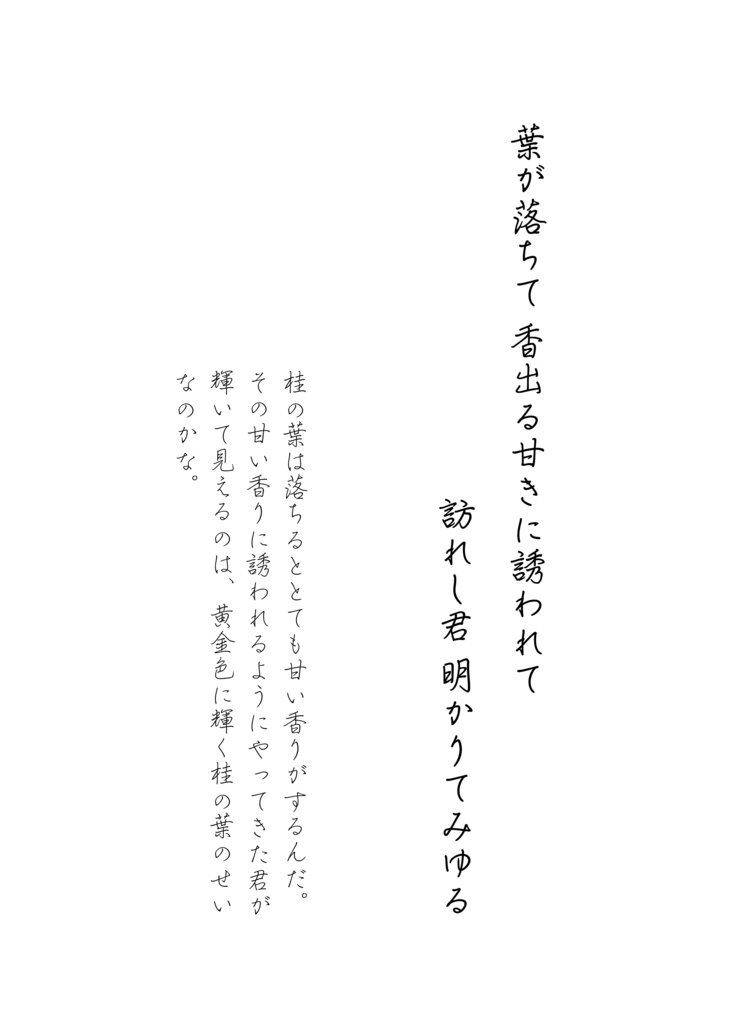 葉が落ちて 香出る甘きに誘われて
訪れし君 明かりてみゆる
桂の葉は落ちるととても甘い香りがするんだ。
その甘い香りに誘われるようにやってきた君が
輝いて見えるのは、黄金色に輝く桂の葉のせい
なのかな。